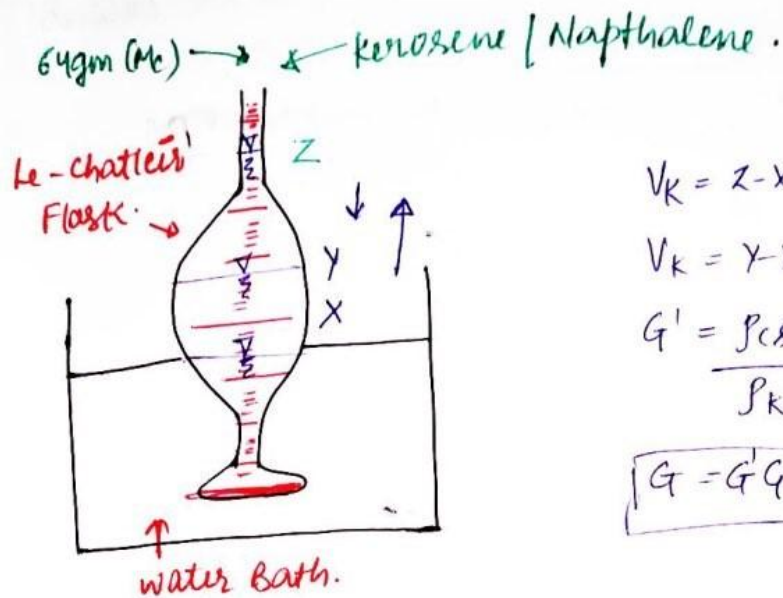 64gm (Mc) → ← Kerosene / Napthalene.
Le-Chatleir'
Flask.
Z
Y
X
Water Bath.
V_K = Z-X
V_K = Y-
G' = ρcs
ρ_K
G = G'G